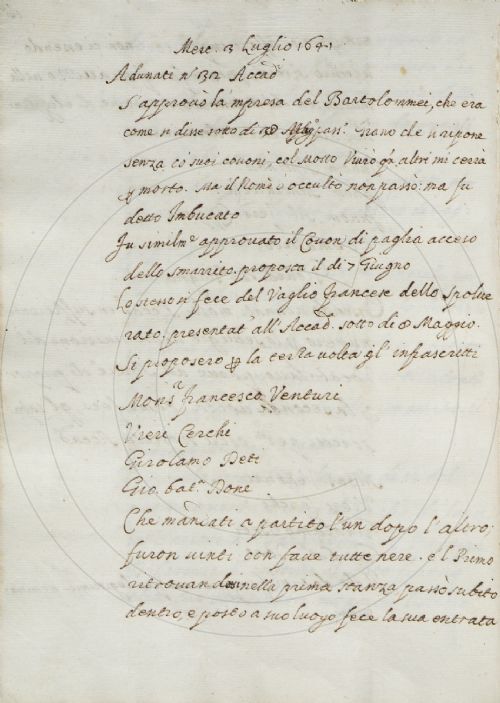 Merc. 3 Luglio 1641
Adunati nº 32 Accad.
S'approvò la 'mpresa del Bartolommei, che era
come si disse sotto di Grano che si ripone
senza co' suoi covoni, col Motto altri mi
morto. Ma il Nome occulto non passò: ma fu
detto Imbucato
Fu similmᵉ approvato il Covon di paglia acceso
dello Smarrito proposta il dì 7 Giugno
Lo stesso si fece del Vaglio francese dello Spolve
rato. presentatᵃ all'Accadᵃ sotto dì 8 Maggio.
Si proposero ꝑ la terza volta gl' infrascritti
Monsʳ francesco Venturi
Vieri Cerchi
Girolamo Deti
Gio. batᵃ Doni
Che mandati a partito l'un dopo l'altro;
furon vinti con fave tutte nere. e'l Primo
ritrovandosi nella prima stanza passò subito
dentro, e posto a suo luogo fece la sua entrata